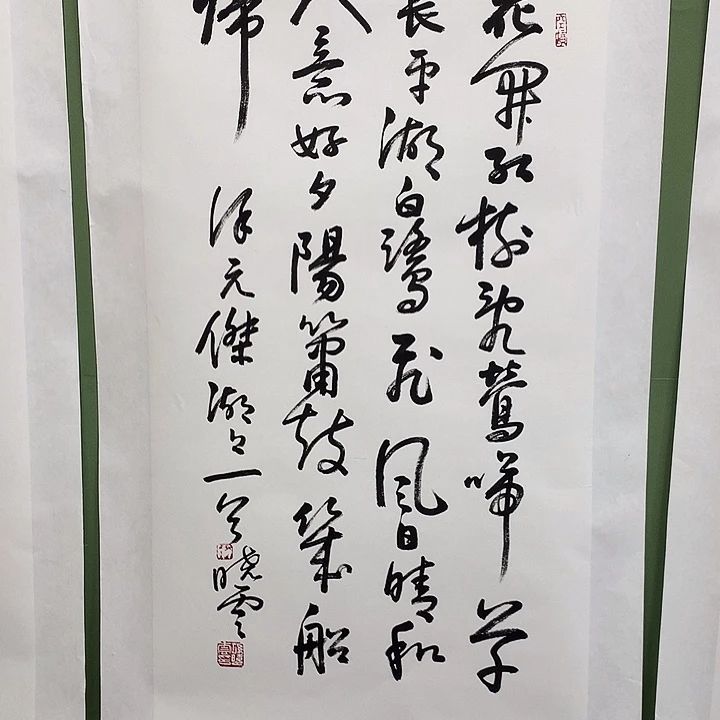 花開紅樹亂鶯啼草
長平湖白鷺飛風日晴和
人意好夕陽簫鼓幾船
歸
徐元傑湖上一首曉雲